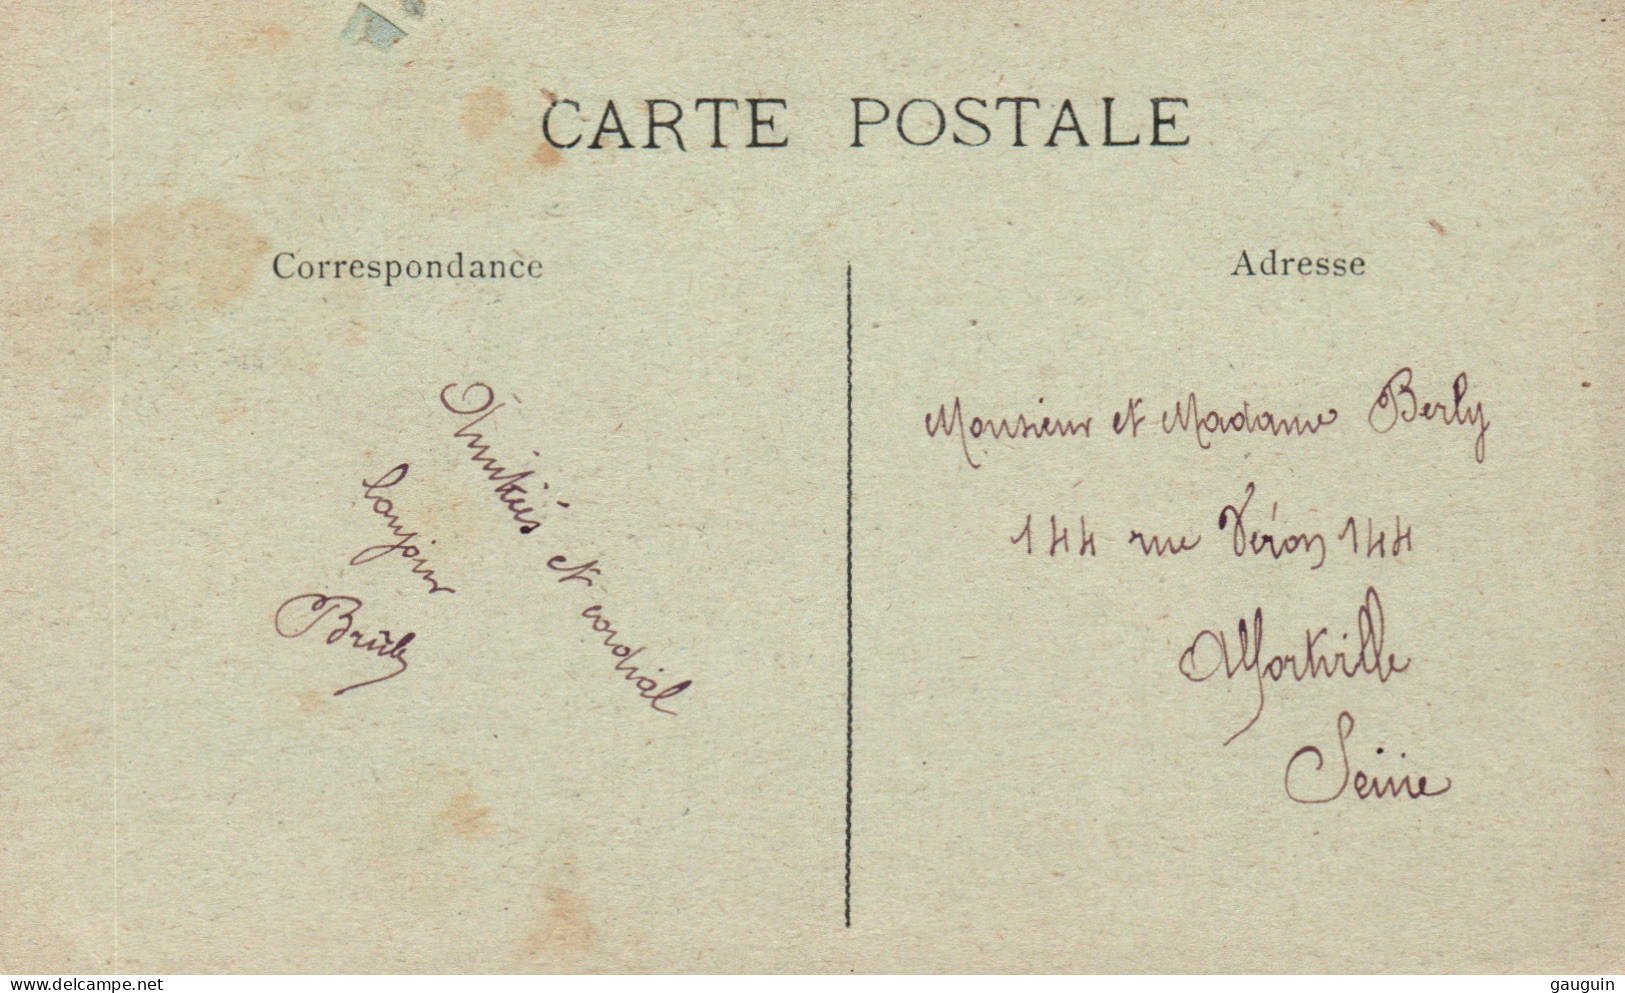 CARTE POSTALE
Correspondance
Adresse
Amitiés et cordial
bonjour
Monsieur et Madame Berly
144 rue Véron 144
Alfortville
Seine
delcampe.net
gauguin